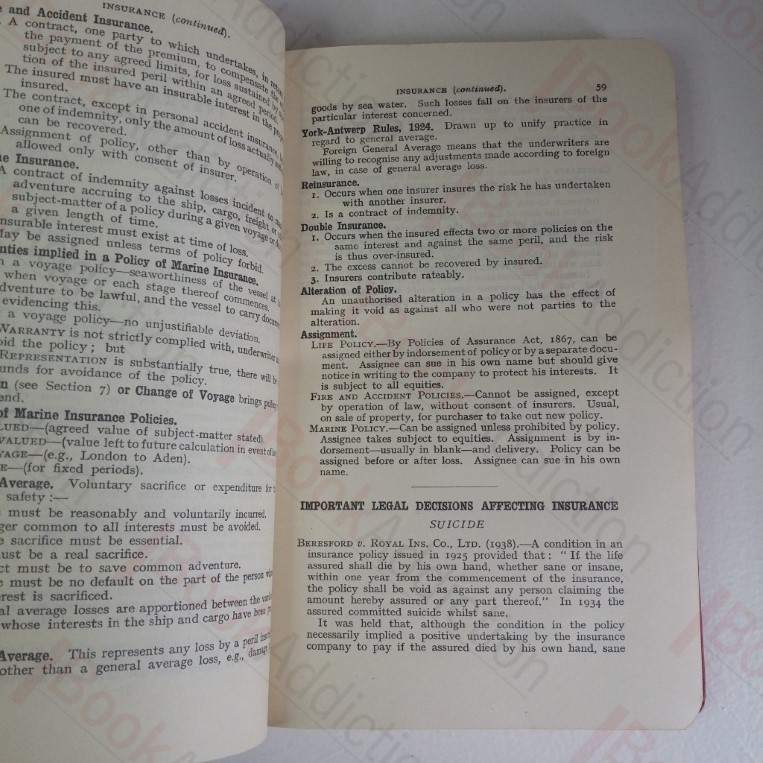 INSURANCE (continued).
and Accident Insurance.
A contract, one party to which undertakes, in
the payment of the premium, to compensate the
subject to any agreed limits, for loss sustained by
tion of the insured peril within an agreed period.
The insured must have an insurable interest in the
insured.
The contract, except in personal accident insurance,
one of indemnity, only the amount of loss actually
can be recovered.
Assignment of policy, other than by operation of
allowed only with consent of insurer.
Insurance.
A contract of indemnity against losses incident to
adventure accruing to the ship, cargo, freight or
subject-matter of a policy during a given voyage or
a given length of time.
nsurable interest must exist at time of loss.
May be assigned unless terms of policy forbid.
nties implied in a Policy of Marine Insurance.
a voyage policy—seaworthiness of the vessel at
when voyage or each stage thereof commences.
dventure to be lawful, and the vessel to carry
evidencing this.
a voyage policy—no unjustifiable deviation.
WARRANTY is not strictly complied with, underwriter
oid the policy; but
REPRESENTATION is substantially true, there will
unds for avoidance of the policy.
(see Section 7) or Change of Voyage brings
end.
of Marine Insurance Policies.
LUED—(agreed value of subject-matter stated).
VALUED—(value left to future calculation in event of
AGE—(e.g., London to Aden).
E—(for fixed periods).
Average. Voluntary sacrifice or expenditure for
safety:—
must be reasonably and voluntarily incurred.
ger common to all interests must be avoided.
sacrifice must be essential.
ust be a real sacrifice.
ct must be to save common adventure.
must be no default on the part of the person
erest is sacrificed.
al average losses are apportioned between the
whose interests in the ship and cargo have been
Average. This represents any loss by a peril
other than a general average loss, e.g., damage
INSURANCE (continued). 59
goods by sea water. Such losses fall on the insurers of the
particular interest concerned.
York-Antwerp Rules, 1924. Drawn up to unify practice in
regard to general average.
Foreign General Average means that the underwriters are
willing to recognise any adjustments made according to foreign
law, in case of general average loss.
Reinsurance.
1. Occurs when one insurer insures the risk he has undertaken
with another insurer.
2. Is a contract of indemnity.
Double Insurance.
1. Occurs when the insured effects two or more policies on the
same interest and against the same peril, and the risk
is thus over-insured.
2. The excess cannot be recovered by insured.
3. Insurers contribute rateably.
Alteration of Policy.
An unauthorised alteration in a policy has the effect of
making it void as against all who were not parties to the
alteration.
Assignment.
LIFE POLICY.—By Policies of Assurance Act, 1867, can be
assigned either by indorsement of policy or by a separate docu-
ment. Assignee can sue in his own name but should give
notice in writing to the company to protect his interests. It
is subject to all equities.
FIRE AND ACCIDENT POLICIES.—Cannot be assigned, except
by operation of law, without consent of insurers. Usual,
on sale of property, for purchaser to take out new policy.
MARINE POLICY.—Can be assigned unless prohibited by policy.
Assignee takes subject to equities. Assignment is by in-
dorsement—usually in blank—and delivery. Policy can be
assigned before or after loss. Assignee can sue in his own
name.
IMPORTANT LEGAL DECISIONS AFFECTING INSURANCE
SUICIDE
BERESFORD v. ROYAL INS. CO., LTD. (1938).—A condition in an
insurance policy issued in 1925 provided that: "If the life
assured shall die by his own hand, whether sane or insane,
within one year from the commencement of the insurance,
the policy shall be void as against any person claiming the
amount hereby assured or any part thereof." In 1934 the
assured committed suicide whilst sane.
It was held that, although the condition in the policy
necessarily implied a positive undertaking by the insurance
company to pay if the assured died by his own hand, sane